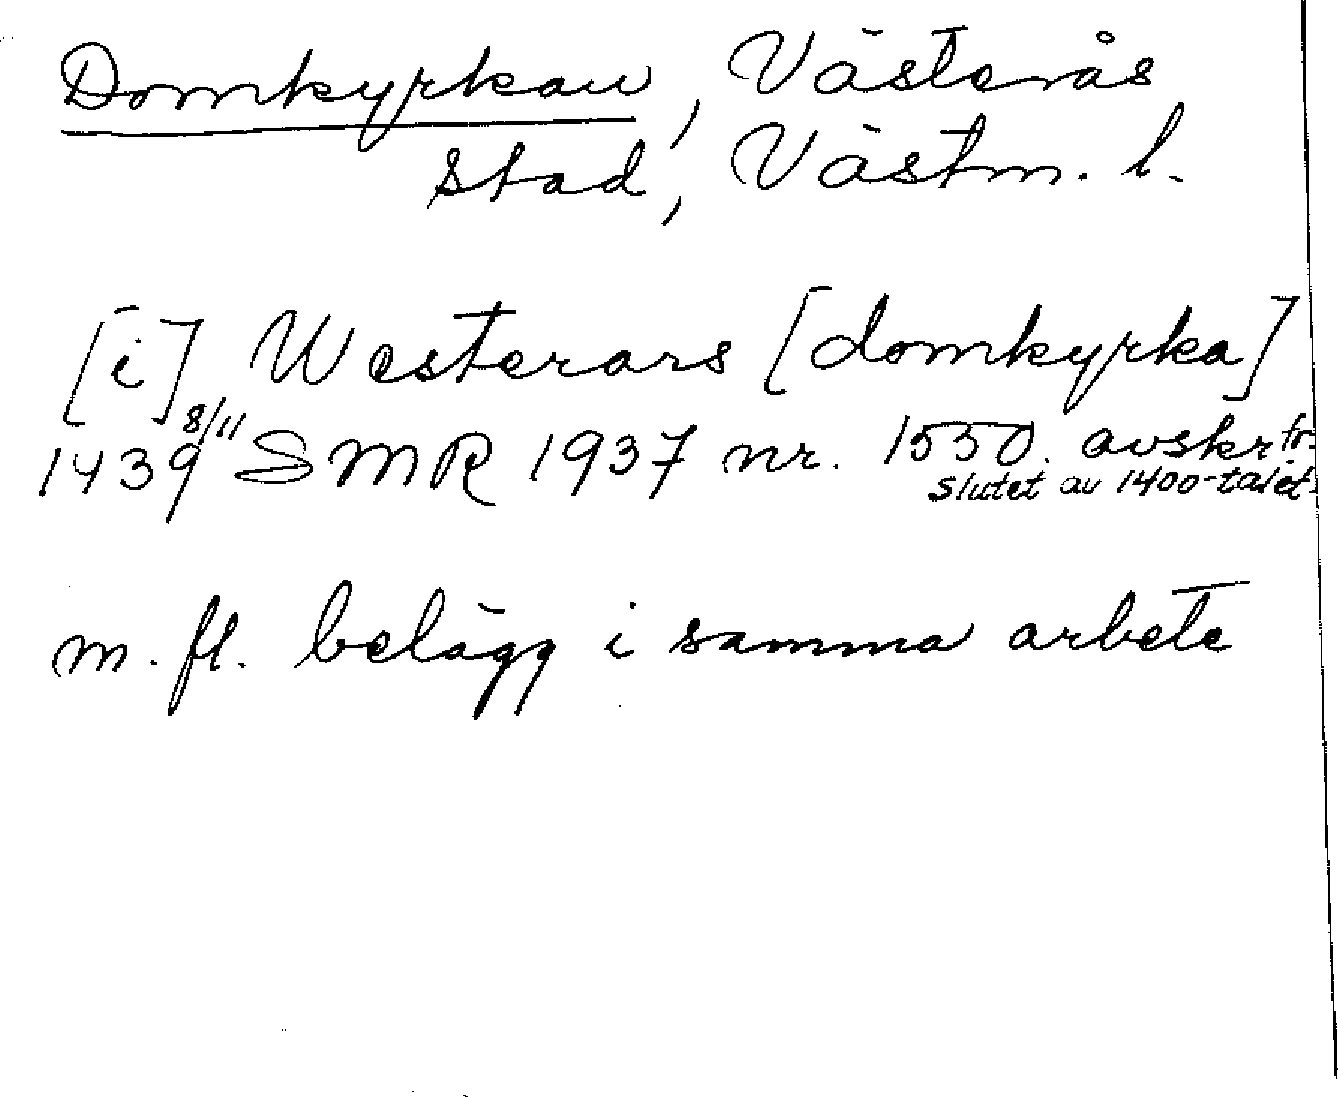 Domkyrkan, Västerås
stad, Västm. l.
[i] Westerars [domkyrka]
1439 8/11 SMR 1937 nr. 1550. avskr fr.
slutet av 1400-talet.
m. fl. belägg i samma arbete